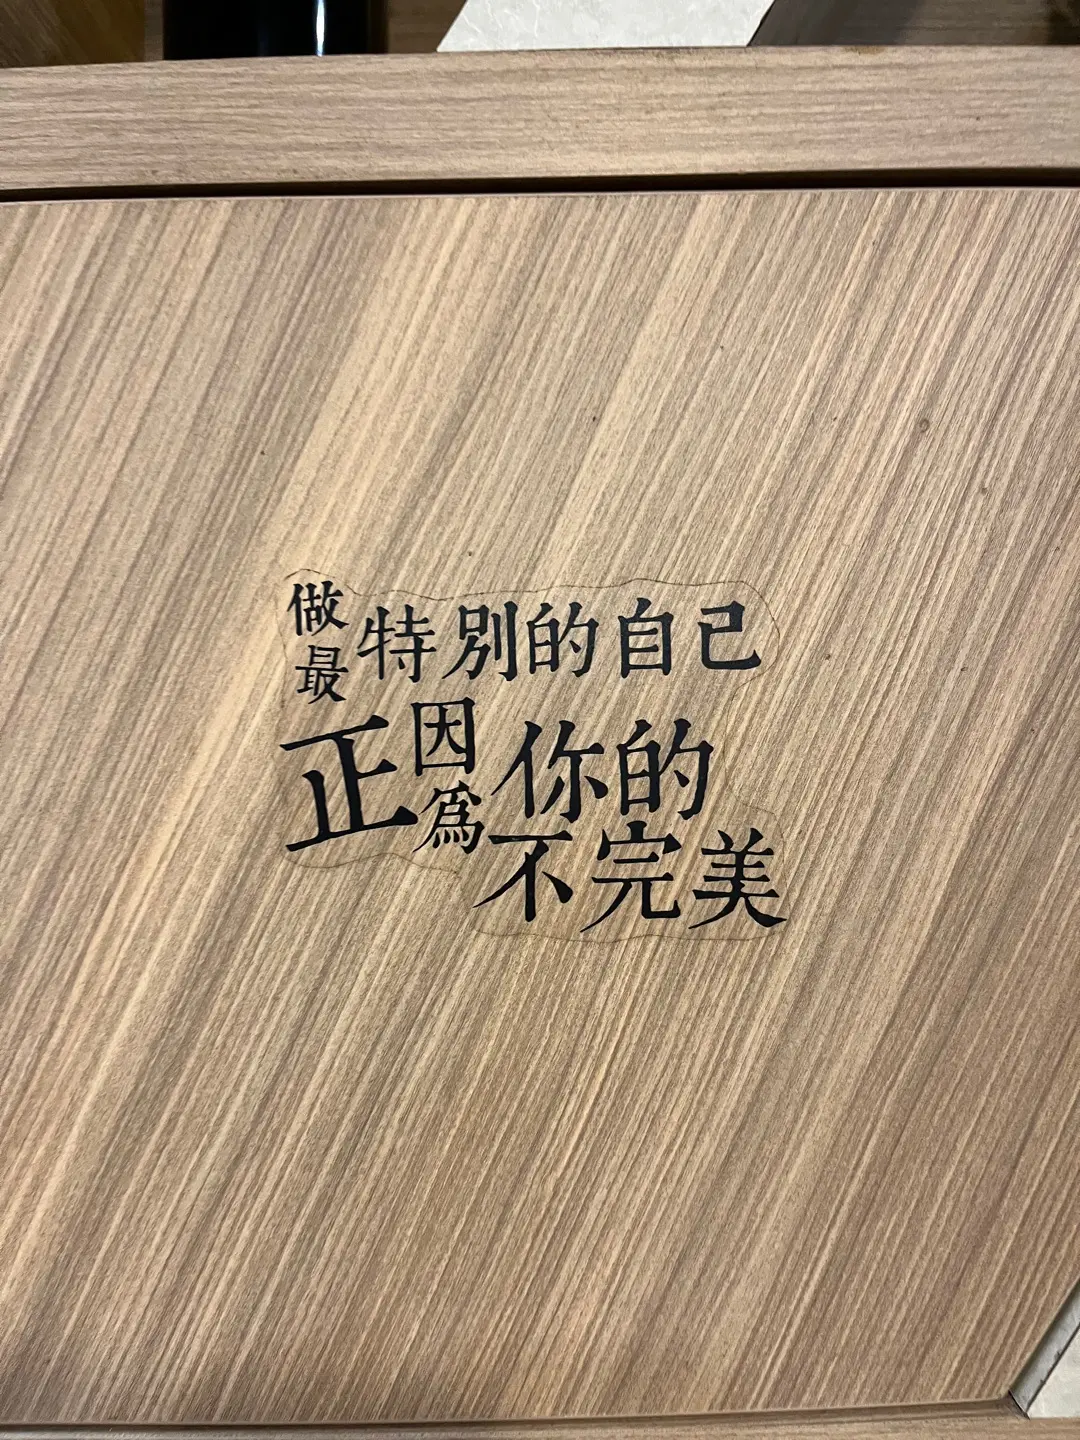 做最特別的自己
正因為你的
不完美